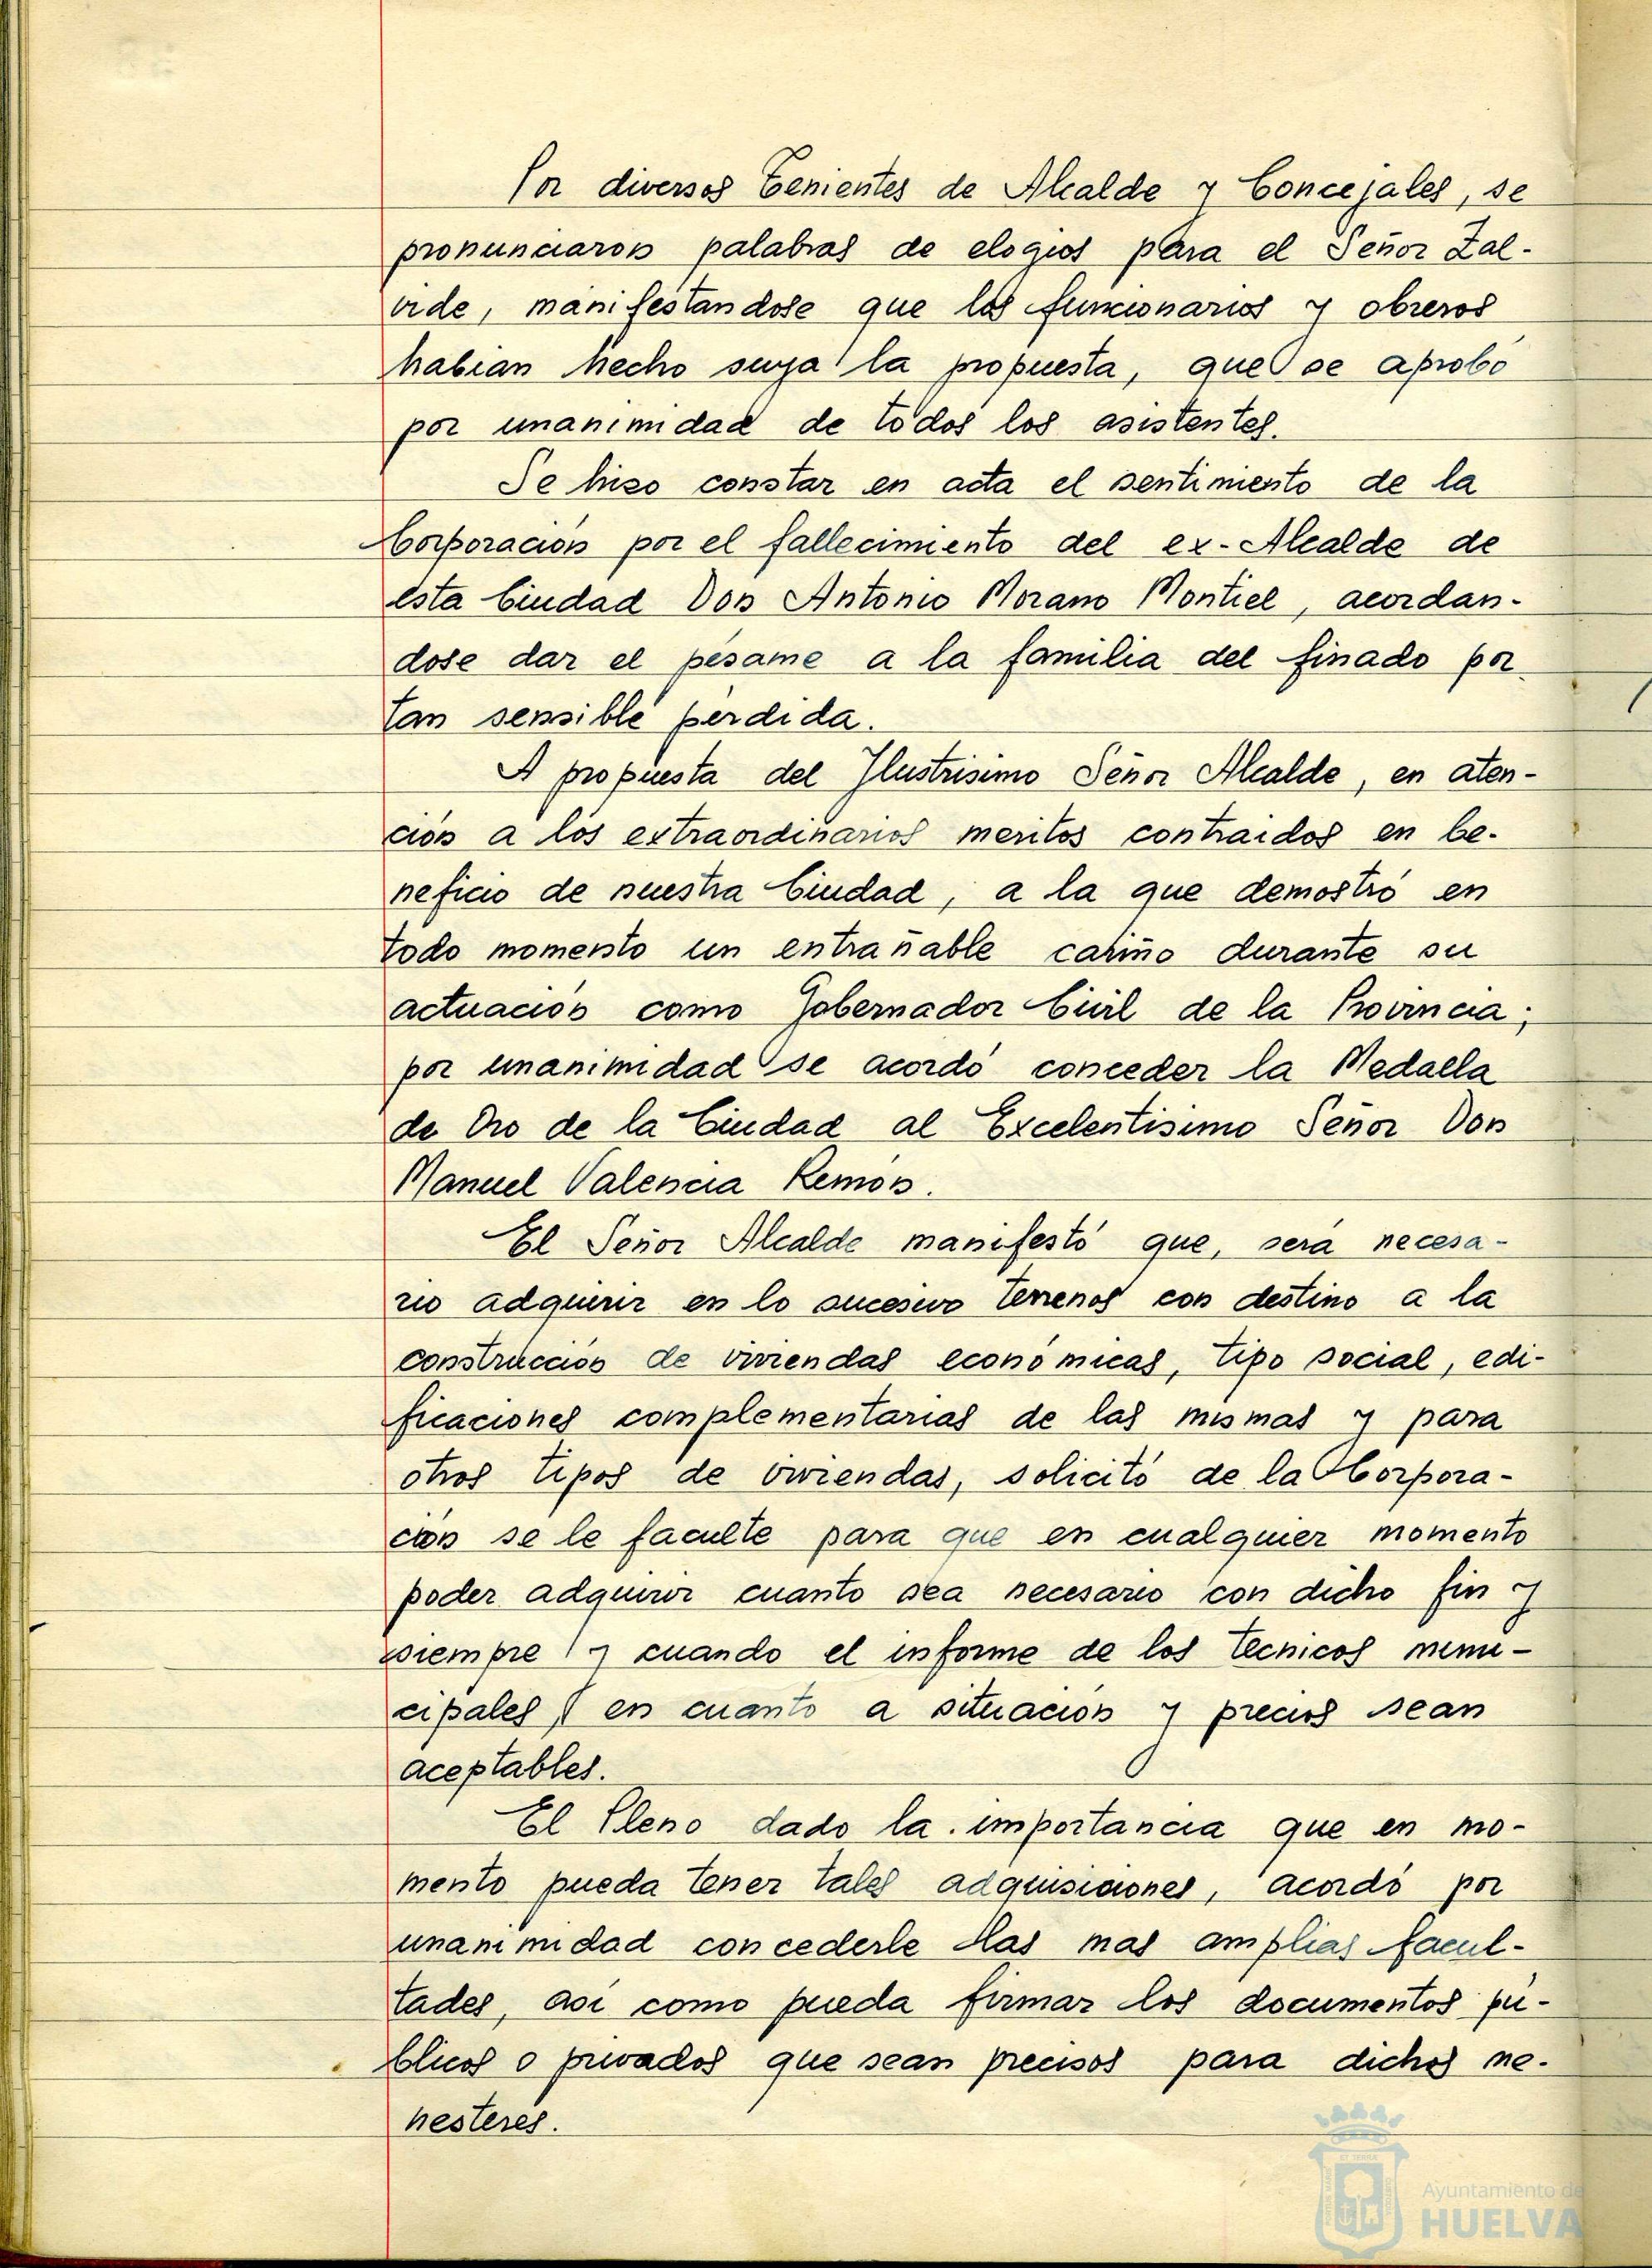 Por diversos Tenientes de Alcalde y Concejales, se
pronunciaron palabras de elogios para el Señor Zal-
vide, manifestandose que los funcionarios y obreros
habian hecho suya la propuesta, que se aprobó
por unanimidad de todos los asistentes.
Se hizo constar en acta el sentimiento de la
Corporación por el fallecimiento del ex-Alcalde de
esta Ciudad Don Antonio Morano Montiel, acordan-
dose dar el pésame a la familia del finado por
tan sensible pérdida.
A propuesta del Ilustrisimo Señor Alcalde, en aten-
ción a los extraordinarios meritos contraidos en be-
neficio de nuestra Ciudad, a la que demostró en
todo momento un entrañable cariño durante su
actuación como Gobernador Civil de la Provincia;
por unanimidad se acordó conceder la Medalla
de Oro de la Ciudad al Excelentisimo Señor Don
Manuel Valencia Remón.
El Señor Alcalde manifestó que, será necesa-
rio adquirir en lo sucesivo terrenos con destino a la
construcción de viviendas económicas, tipo social, edi-
ficaciones complementarias de las mismas y para
otros tipos de viviendas, solicitó de la Corpora-
ción se le faculte para que en cualquier momento
poder adquirir cuanto sea necesario con dicho fin y
siempre y cuando el informe de los tecnicos muni-
cipales, en cuanto a situación y precios sean
aceptables.
El Pleno dado la importancia que en mo-
mento pueda tener tales adquisiciones, acordó por
unanimidad concederle las mas amplias facul-
tades, asi como pueda firmar los documentos pú-
blicos o privados que sean precisos para dichos me-
nesteres.
Ayuntamiento de
HUELVA